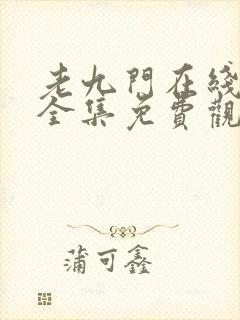 老九門在綫
全集免費觀
蒲可鑫